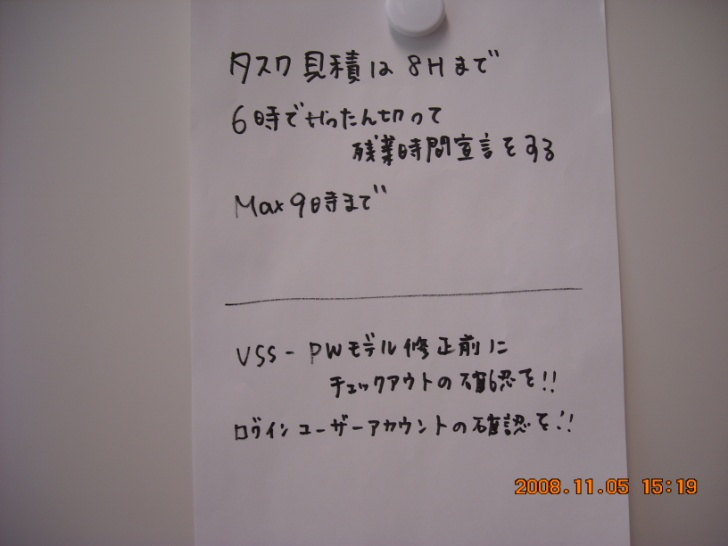 タスク見積は8Hまで
6時でいったん切って
残業時間宣言をする
Max9時まで
VSS-PWモデル修正前に
チェックアウトの確認を!!
ログインユーザーアカウントの確認を!!
2008.11.05 15:19